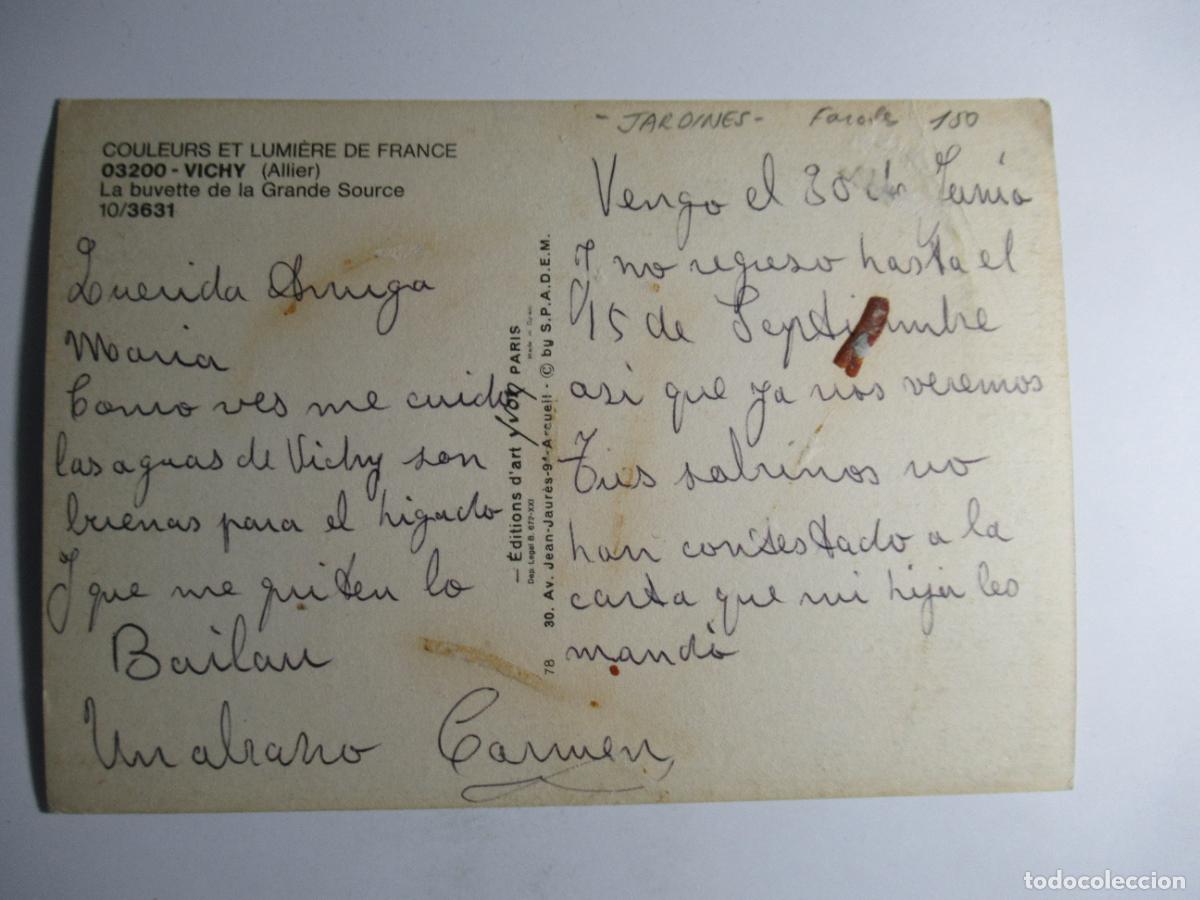 - JARDINES - 150
COULEURS ET LUMIÈRE DE FRANCE
03200 - VICHY (Allier)
La buvette de la Grande Source
10/3631
Querida Amiga
Maria
Como ves me cuido
las aguas de Vichy son
buenas para el higado
Y que me quiten lo
Bailau
Un abrazo Carmen
— Éditions d'art YVON PARIS
Dep. Legal B. 672-XXI
Made in Spain
78 30. Av. Jean-Jaurès-94-Arcueil - © by S.P.A.D.E.M.
Vengo el 30 de Junio
Y no regreso hasta el
15 de Septiembre
asi que ya nos veremos
Tus sobrinos no
han contestado a la
carta que mi hija les
mandó
todocoleccion